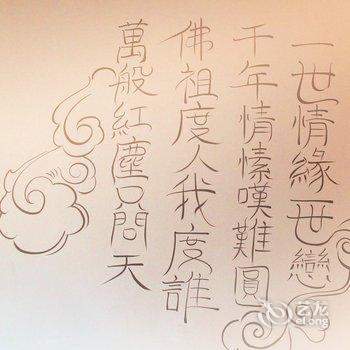 一世情緣一世戀
千年情愫嘆難圓
佛祖度人我度誰
萬般紅塵只問天
艺龙
eLong.com